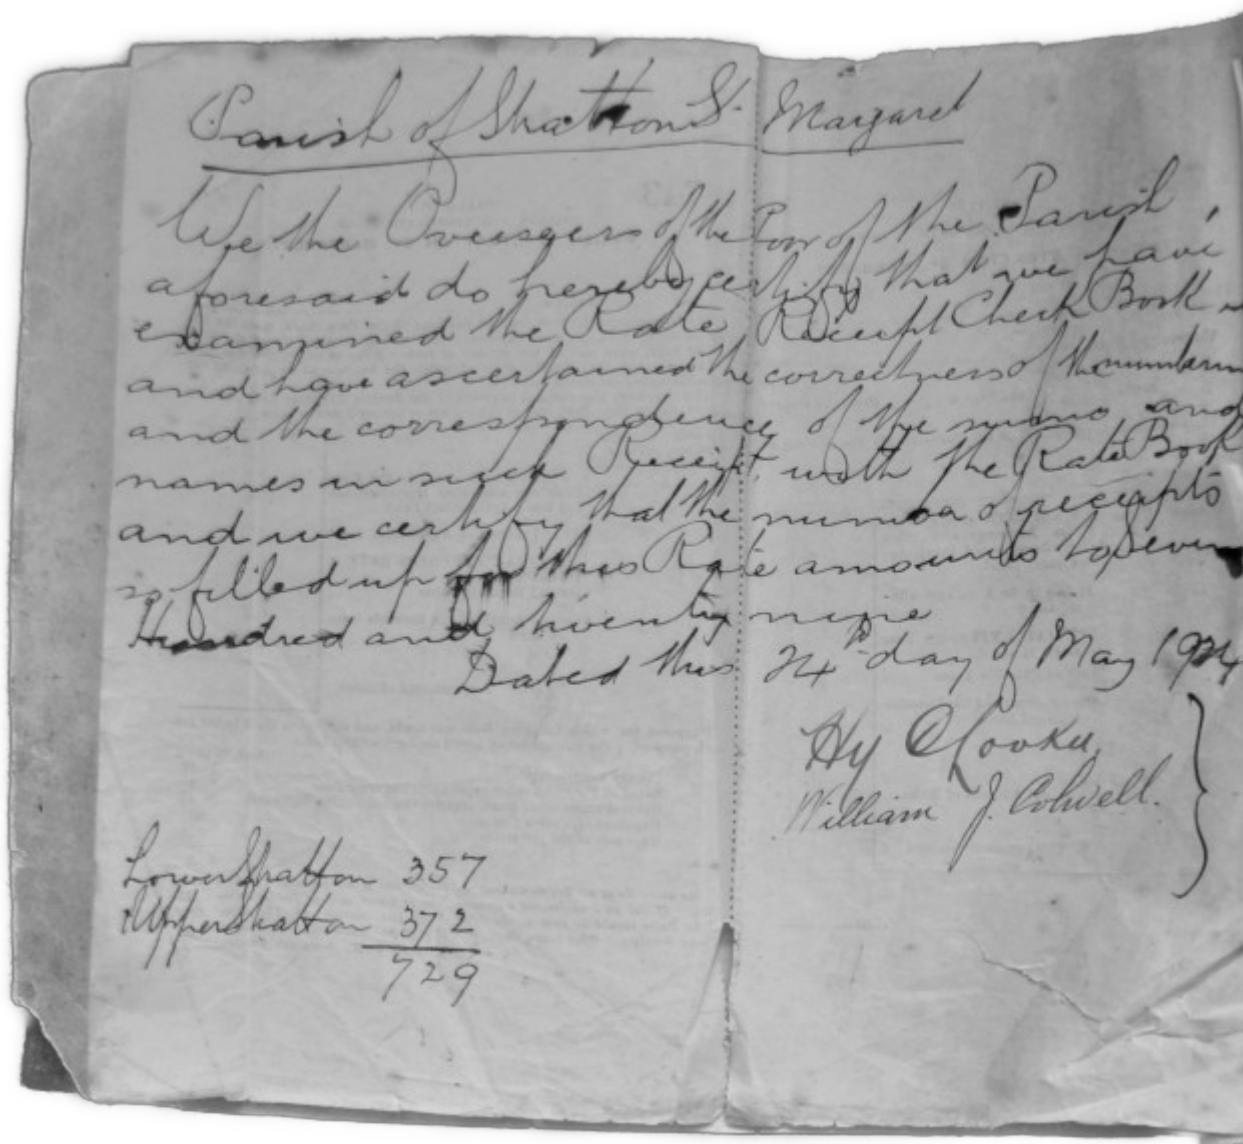 Parish of Stratton St. Margaret
We the Overseers of the Poor of the Parish
aforesaid do hereby certify that we have
examined the Rate Receipt Check Book
and have ascertained the correctness of the
and the correspondence of the sums and
names in such Receipt with the Rate Book
and we certify that the number of receipts
so filled up for this Rate amounts to Seven
Hundred and twenty nine
Dated this 24th day of May 1924
Hy
William J. Colwell.
Lower Stratton 357
Upper Stratton 372
729